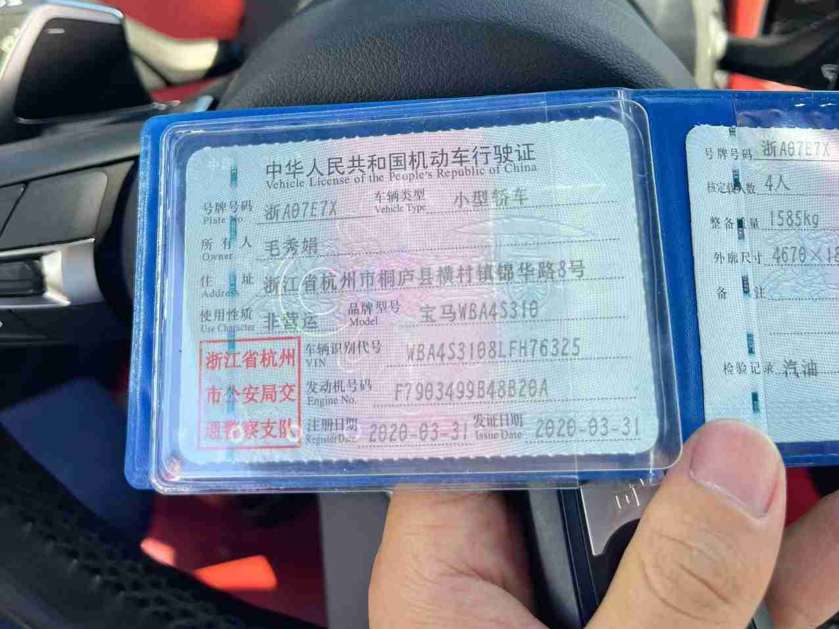 中华人民共和国机动车行驶证
Vehicle License of the People's Republic of China
号牌号码 浙A07E7X 车辆类型 小型轿车
Plate No. Vehicle Type
所有人 毛秀娟
Owner
住址 浙江省杭州市桐庐县横村镇锦华路8号
Address
使用性质 非营运 品牌型号 宝马WBA4S310
Use Character Model
浙江省杭州
市公安局交
通警察支队
车辆识别代号 WBA4S3108LFH76325
VIN
发动机号码 F7903499B48B20A
Engine No.
注册日期 2020-03-31 发证日期 2020-03-31
Register Date Issue Date
号牌号码 浙A07E7X
核定载人数 4人
整备质量 1585kg
外廓尺寸 4670×18
备注
检验记录 汽油